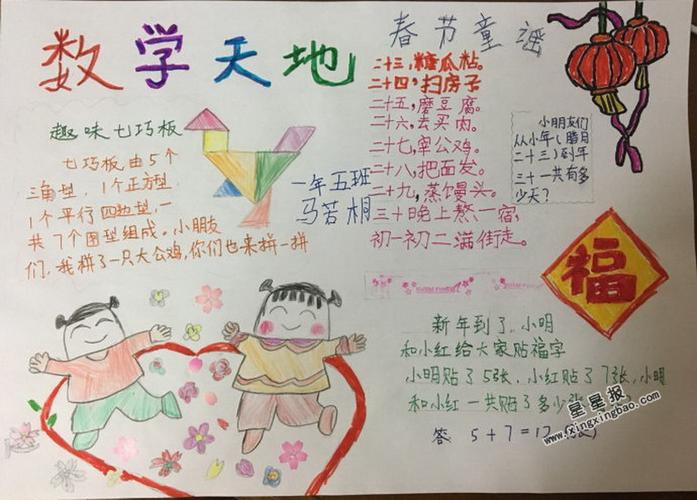 数学天地
趣味七巧板
七巧板由5个
三角型，1个正方型，
1个平行四边型，一
共7个图型组成。小朋友
们，我拼了一只大公鸡，你们也来拼一拼
一年五班
马若桐
春节童谣
二十三，糖瓜粘。
二十四，扫房子
二十五，磨豆腐。
二十六，去买肉。
二十七，宰公鸡。
二十八，把面发。
二十九，蒸馒头。
三十晚上熬一宿，
初一初二满街走。
小朋友们
从小年（腊月
二十三）到年
三十一共有多
少天？
福
新年到了，小明
和小红给大家贴福字
小明贴了5张，小红贴了7张，小明
和小红一共贴了多少张
答 5+7=12
星星报
www.xingxingbao.com